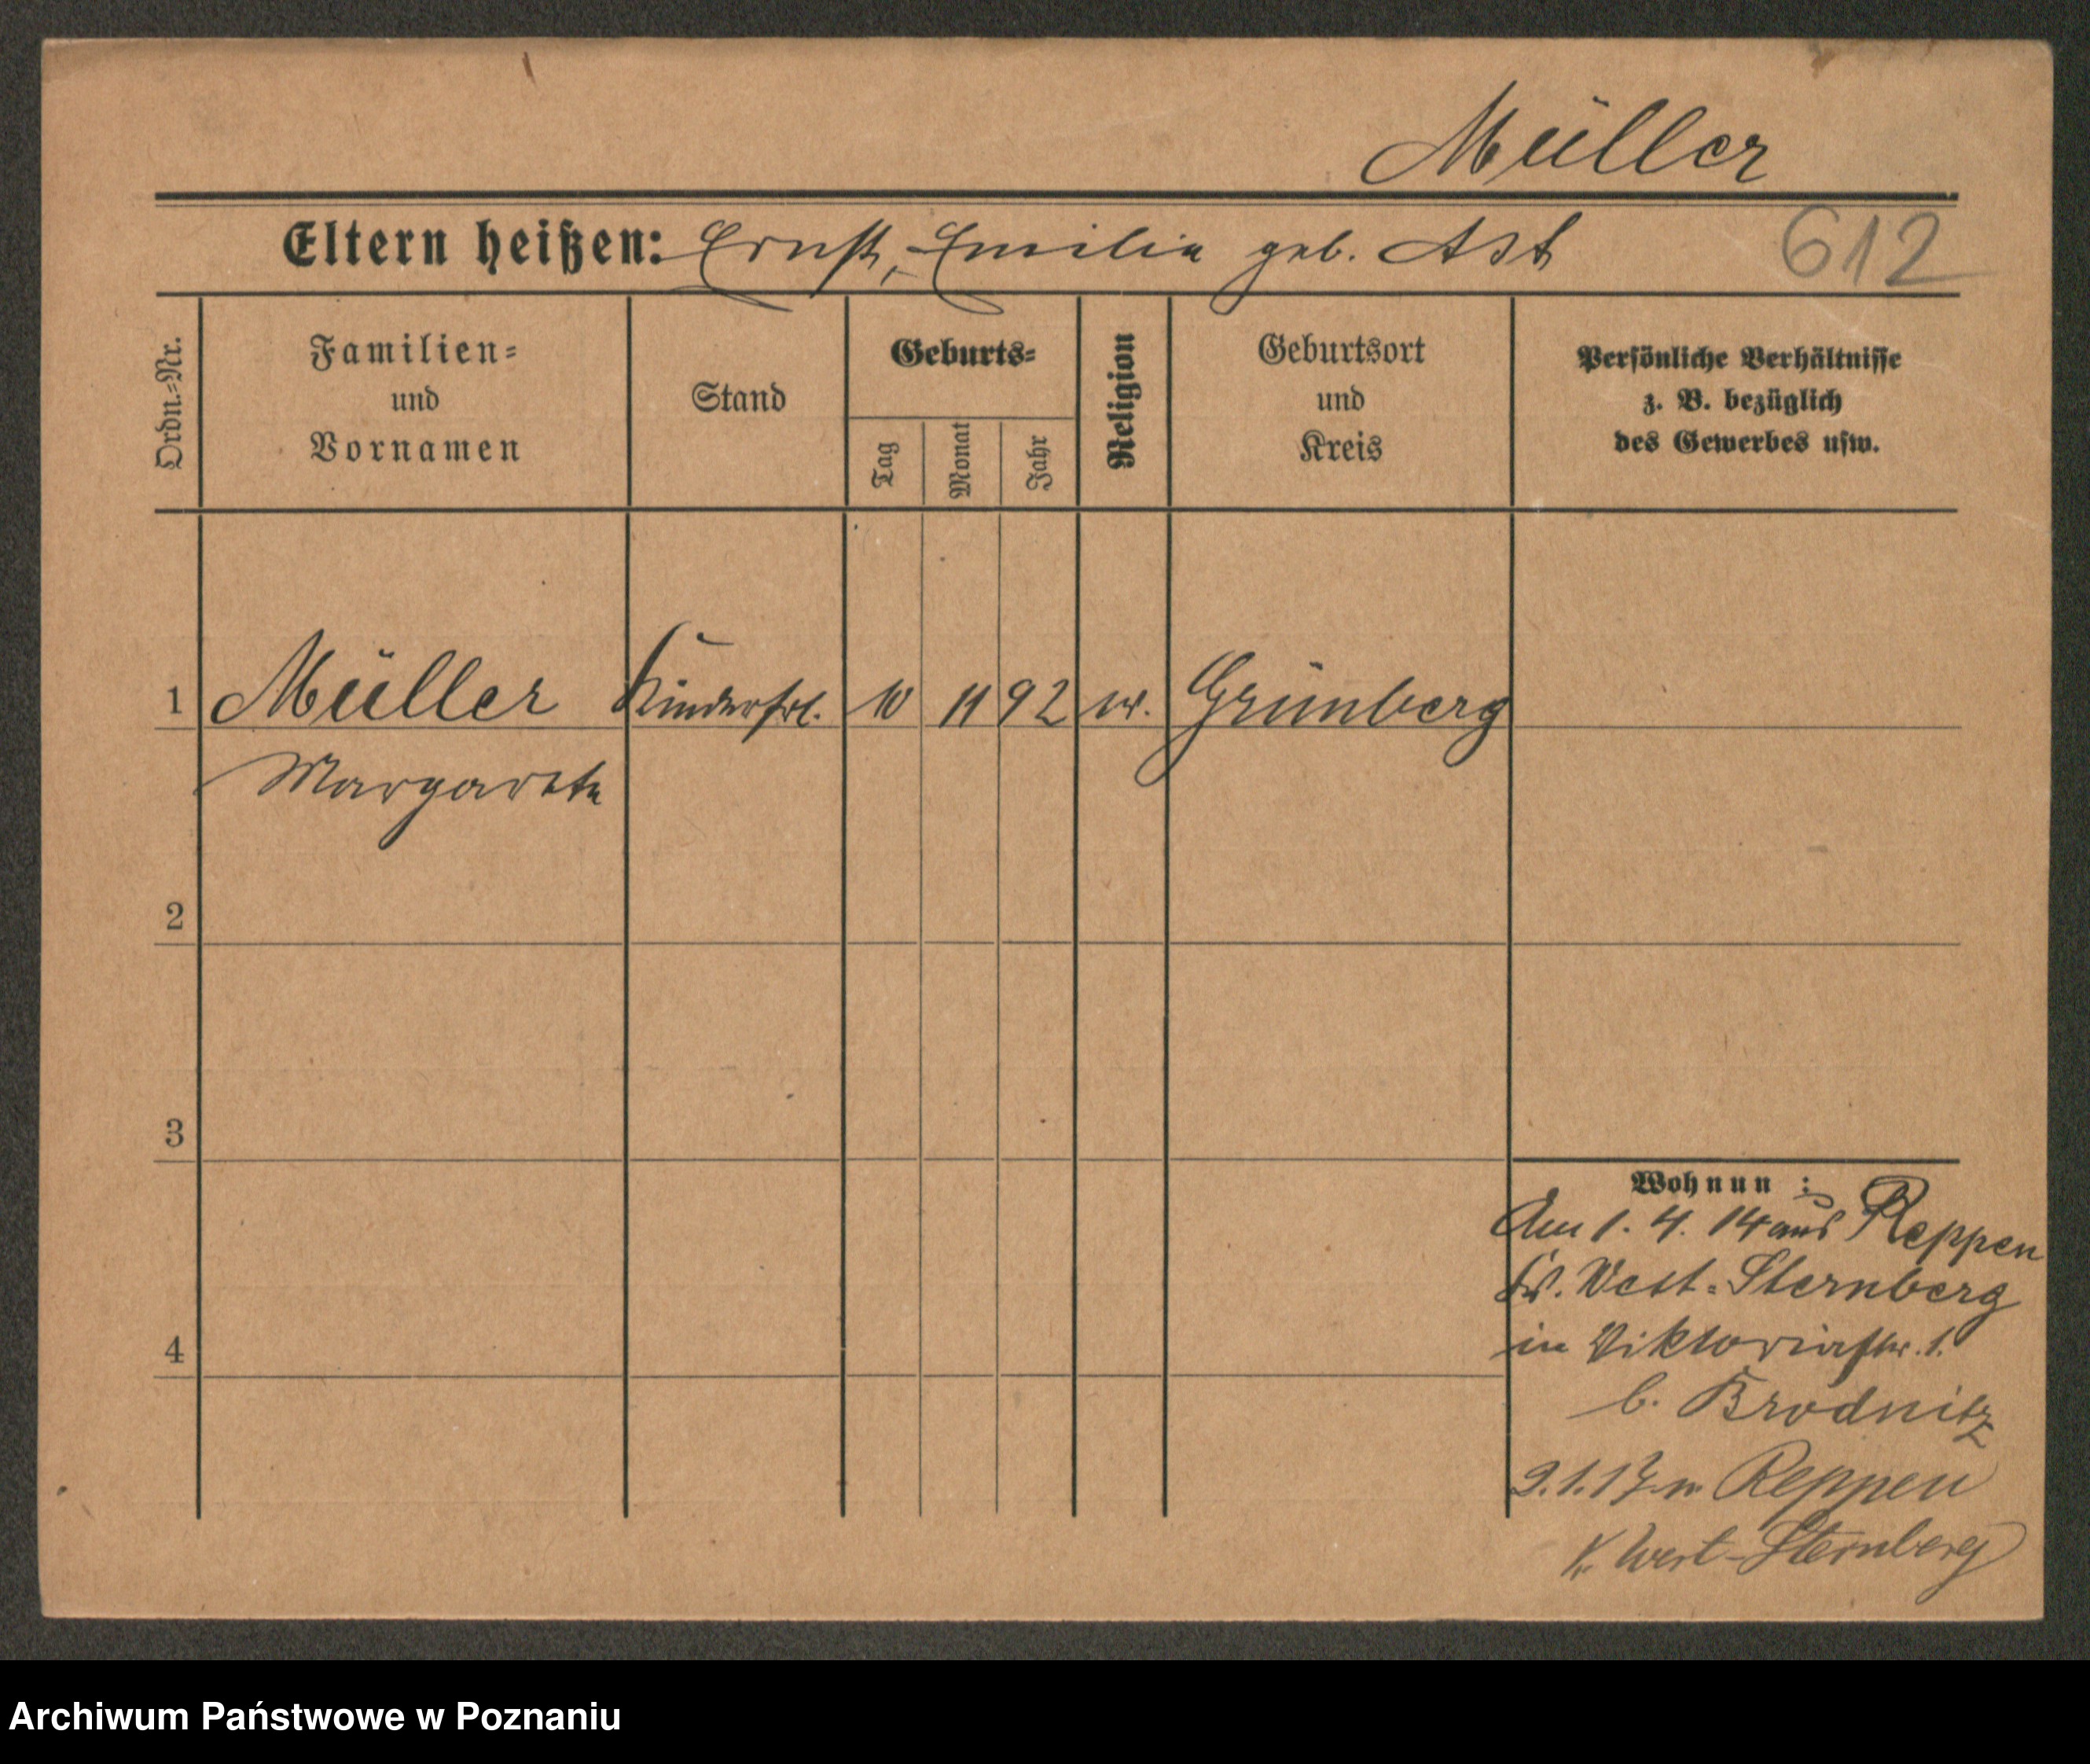 Müller
Eltern heißen: Ernst, Emilie geb. Ast
612
Ordn.=Nr.
Familien=
und
Vornamen
Stand
Geburts=
Tag
Monat
Jahr
Religion
Geburtsort
und
Kreis
Persönliche Verhältnisse
z. B. bezüglich
des Gewerbes usw.
1 Müller Kinderfrl. 10 11 92 ev. Grünberg
Margarete
2
3
4
Wohnun :
Am 1. 4. 14 aus Reppen
Kr. West-Sternberg
in Viktoriastr. 1.
b. Brodnitz
2.1.17 n Reppen
Kr West-Sternberg
Archiwum Państwowe w Poznaniu